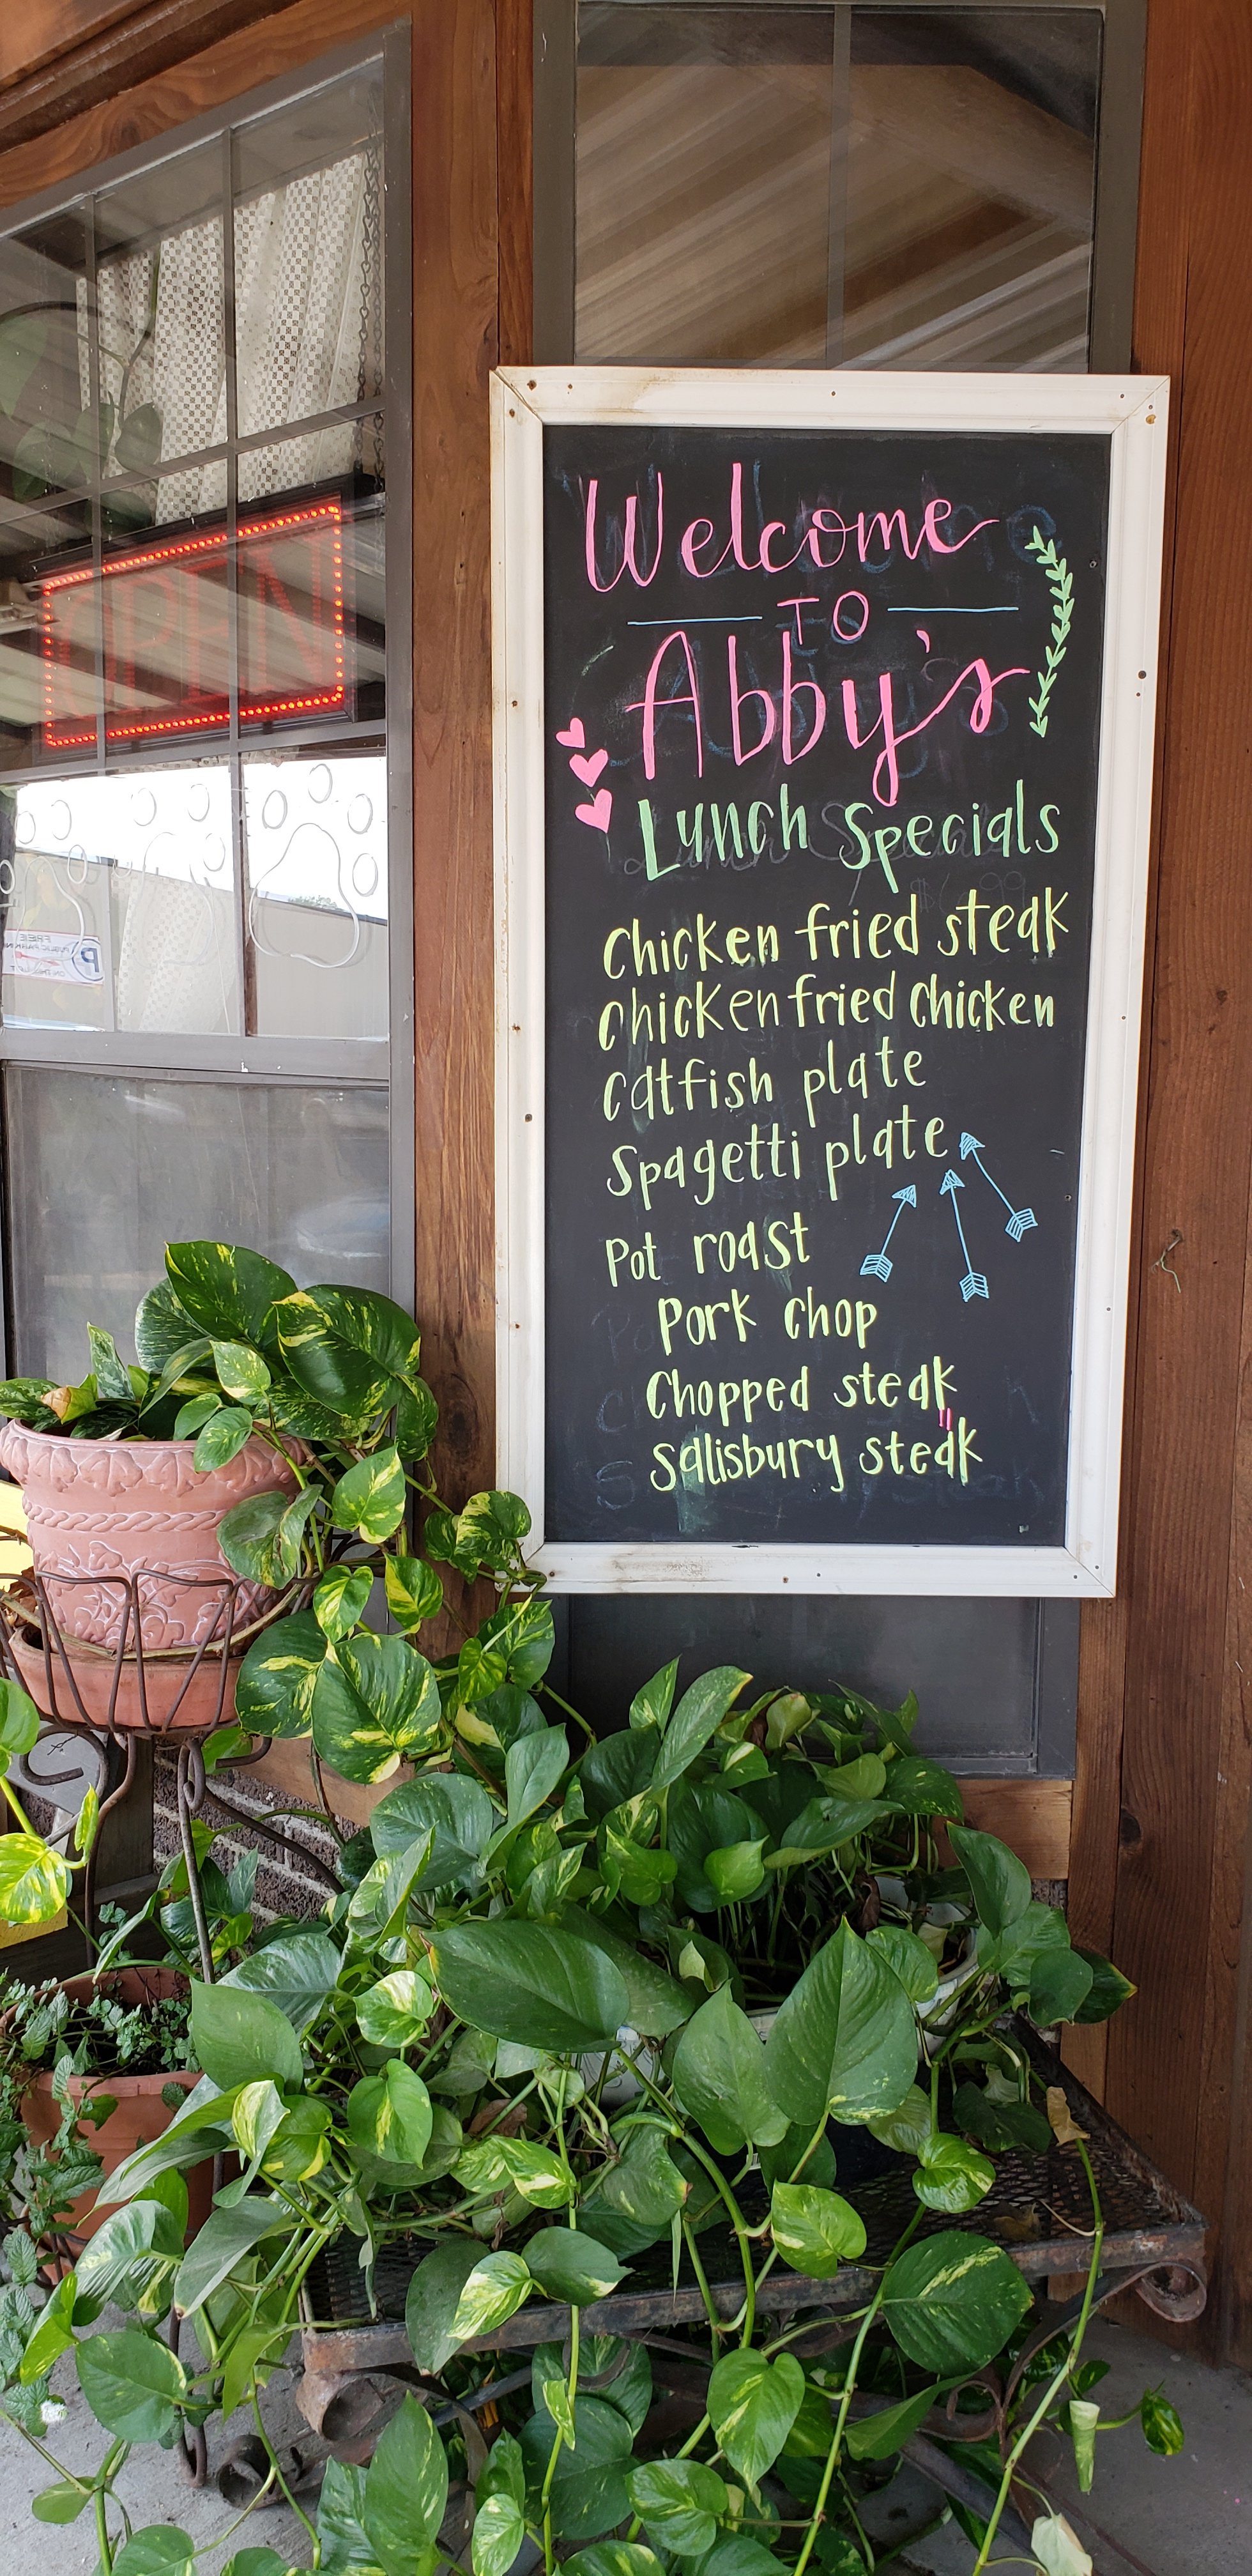 Welcome
TO
Abby's
Lunch Specials
Chicken fried steak
Chicken fried Chicken
Catfish plate
Spagetti plate
Pot roast
Pork Chop
Chopped steak
Salisbury steak
OPEN
FREE
P